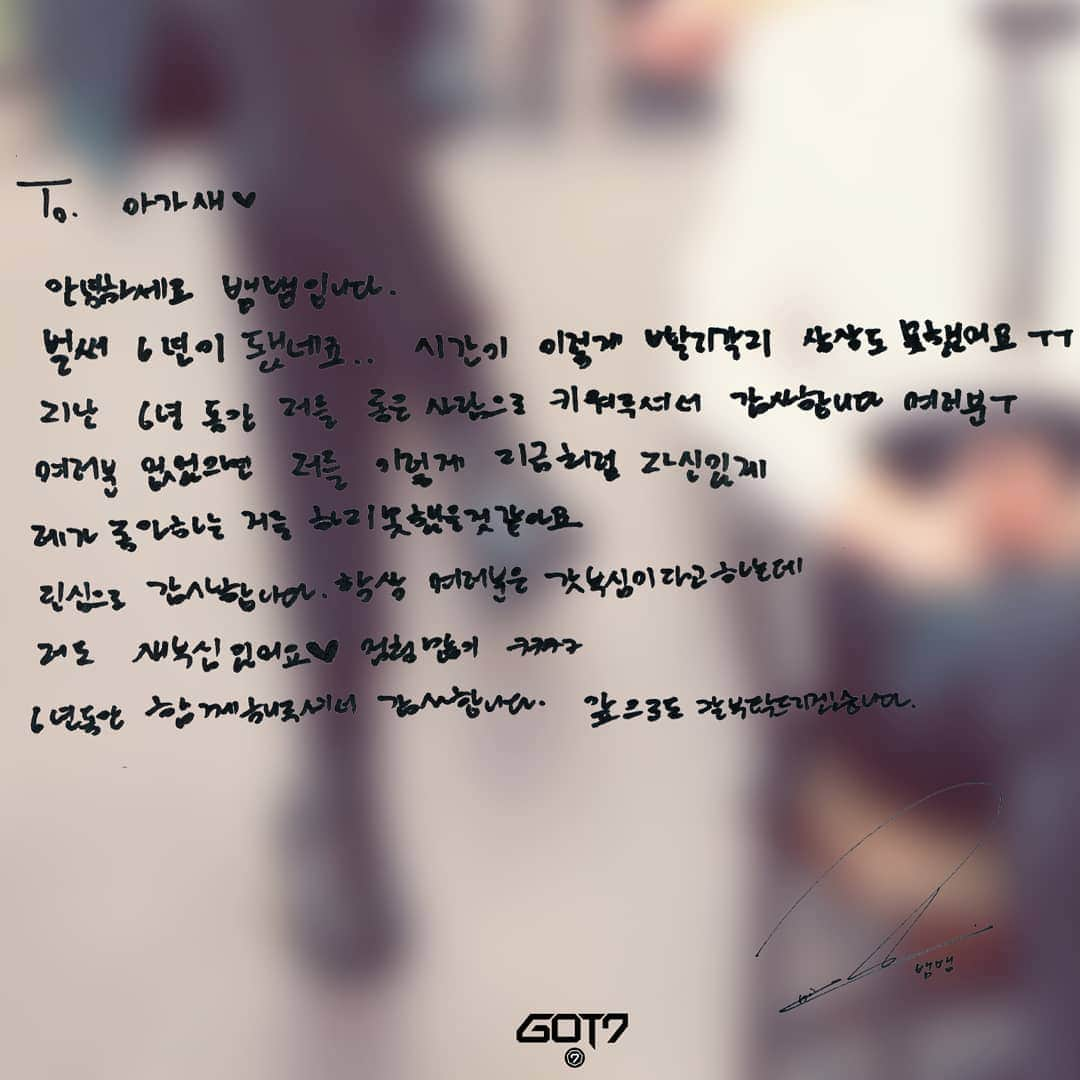 To. 아가새♥
안녕하세요 뱀뱀입니다.
벌써 6년이 됐네죠.. 시간이 이렇게 빨리갈지 상상도 못했어요 ㅜㅜ
지난 6년 동안 저를 좋은 사람으로 키워주셔서 감사합니다 여러분ㅜ
여러분 없었으면 저를 이렇게 지금처럼 자신있게
제가 좋아하는 거를 하지 못했을것 같아요
진심으로 감사합니다. 항상 여러분은 갓부심이라고 하는데
저도 새부심 있어요♥ ㅋㅋㅋㅋ
6년동안 함께해주셔서 감사합니다. 앞으로도 잘부탁드리겠습니다.
뱀뱀
GOT7
7